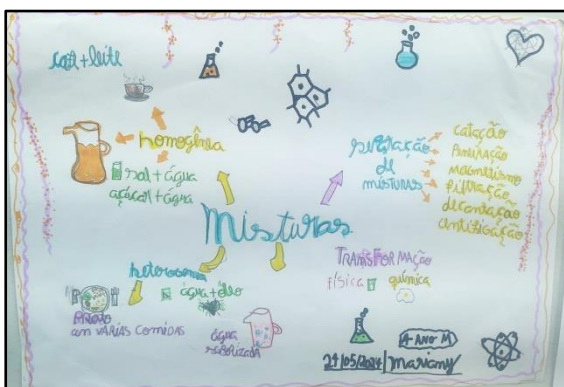 café + leite
homogênia
sal + água
açúcar + água
separação
de
misturas
catação
Peneiração
magnetismo
filtração
decantação
Misturas
heterogenia
água + óleo
PRATO
com VÁRIAS COMIDAS
água
saborizada
TRANSFORMAÇÃO
física
química
4º ANO M
21/05/2024
Mariany